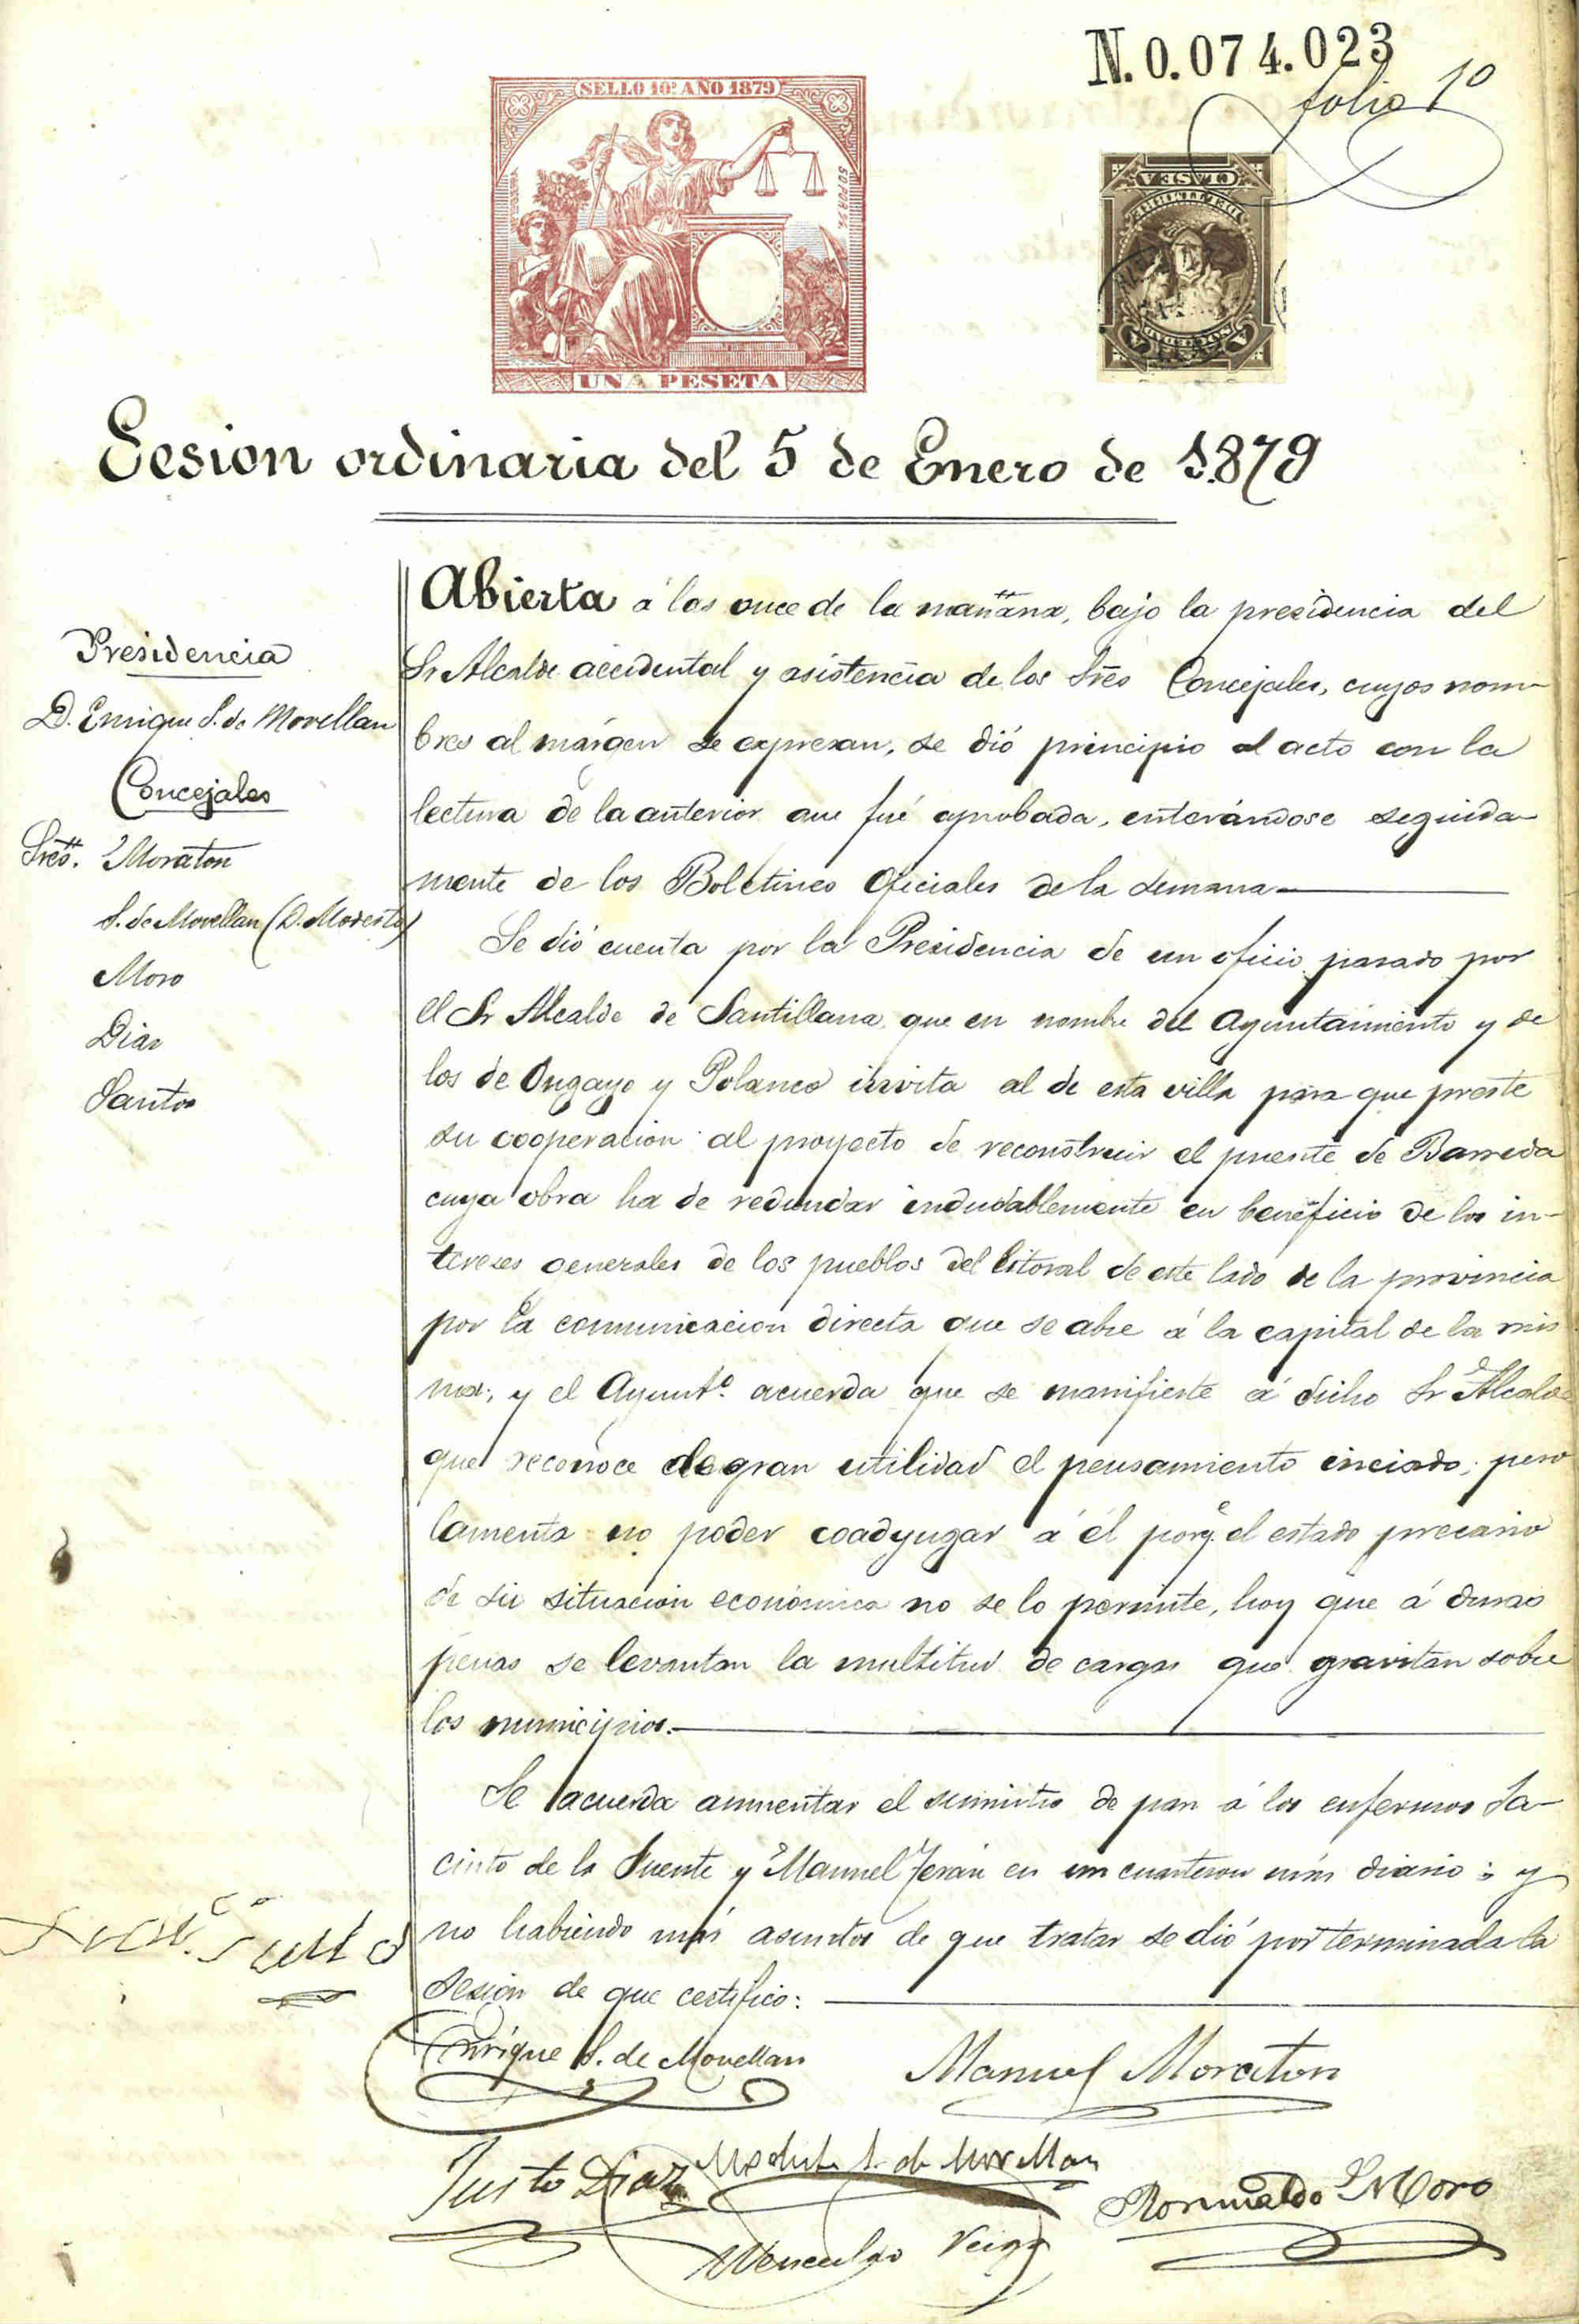 N.0.074.023
folio 1º
SELLO 10º AÑO 1879
UNA PESETA
Sesion ordinaria del 5 de Enero de 1879
Presidencia
D. Enrique S. de Movellan
Concejales
Sres. Moraton
S. de Movellan (D. Modesto)
Moro
Diaz
Santos
Abierta á las once de la mañana, bajo la presidencia del
Sr Alcalde accidental y asistencia de los Sres Concejales, cuyos nom-
bres al márgen se expresan, se dió principio al acto con la
lectura de la anterior que fué aprobada, enterándose seguida-
mente de los Boletines Oficiales de la semana
Se dió cuenta por la Presidencia de un oficio pasado por
el Sr Alcalde de Santillana que en nombre del Ayuntamiento y de
los de Ongayo y Polanco invita al de esta villa para que preste
su cooperacion al proyecto de reconstruir el puente de Barreda
cuya obra ha de redundar indudablemente en beneficio de los in-
tereses generales de los pueblos del litoral de este lado de la provincia
por la comunicacion directa que se abre á la capital de la mis
ma; y el Ayuntº. acuerda que se manifieste á dicho Sr Alcalde
que reconoce de gran utilidad el pensamiento iniciado; pero
lamenta no poder coadyugar á él porqe el estado precario
de su situacion económica no se lo permite, hoy que á duras
penas se levantan la multitud de cargas que gravitan sobre
los municipios.
Se acuerda aumentar el suministro de pan á los enfermos Ja-
cinto de la Fuente y Manuel Terán en un cuarteron más diario; y
no habiendo más asuntos de que tratar se dió por terminada la
sesion de que certifico:
Enrique S. de Movellan
Manuel Moraton
Justo Diaz
Modesto S. de Movellan
Romualdo Moro
Wenceslao Veiga